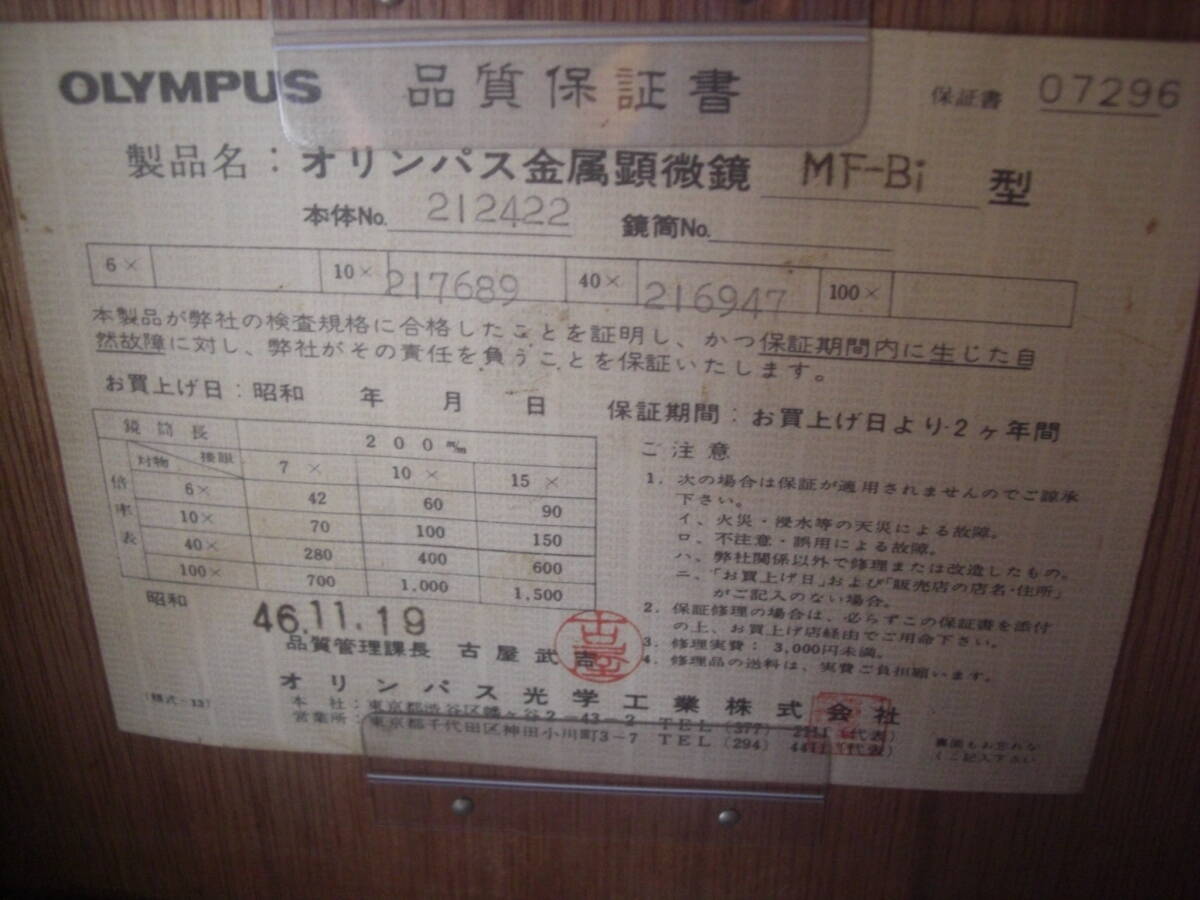 OLYMPUS 品質保証書 保証書 07296
製品名：オリンパス金属顕微鏡 MF-Bi 型
本体No. 212422 鏡筒No.
6× 10× 217689 40× 216947 100×
本製品が弊社の検査規格に合格したことを証明し、かつ保証期間内に生じた自
然故障に対し、弊社がその責任を負うことを保証いたします。
お買上げ日：昭和 年 月 日 保証期間：お買上げ日より2ヶ年間
鏡筒長 200㎜
倍率表 対物 接眼 7× 10× 15×
6× 42 60 90
10× 70 100 150
40× 280 400 600
100× 700 1,000 1,500
ご注意
1. 次の場合は保証が適用されませんのでご諒承
下さい。
イ、火災・浸水等の天災による故障。
ロ、不注意・誤用による故障。
ハ、弊社関係以外で修理または改造したもの。
ニ、「お買上げ日」および「販売店の店名・住所」
がご記入のない場合。
2. 保証修理の場合は、必らずこの保証書を添付
の上、お買上げ店経由でご用命下さい。
3. 修理実費：3,000円未満。
4. 修理品の送料は、実費ご負担願います。
昭和 46.11.19
品質管理課長 古屋武
古屋
オリンパス光学工業株式会社
本社：東京都渋谷区幡ヶ谷2-43-2 TEL (377) 2111 (代表)
営業所：東京都千代田区神田小川町3-7 TEL (294) 4411 (代表)
(様式-137
裏面もお忘れな
くご記入下さい